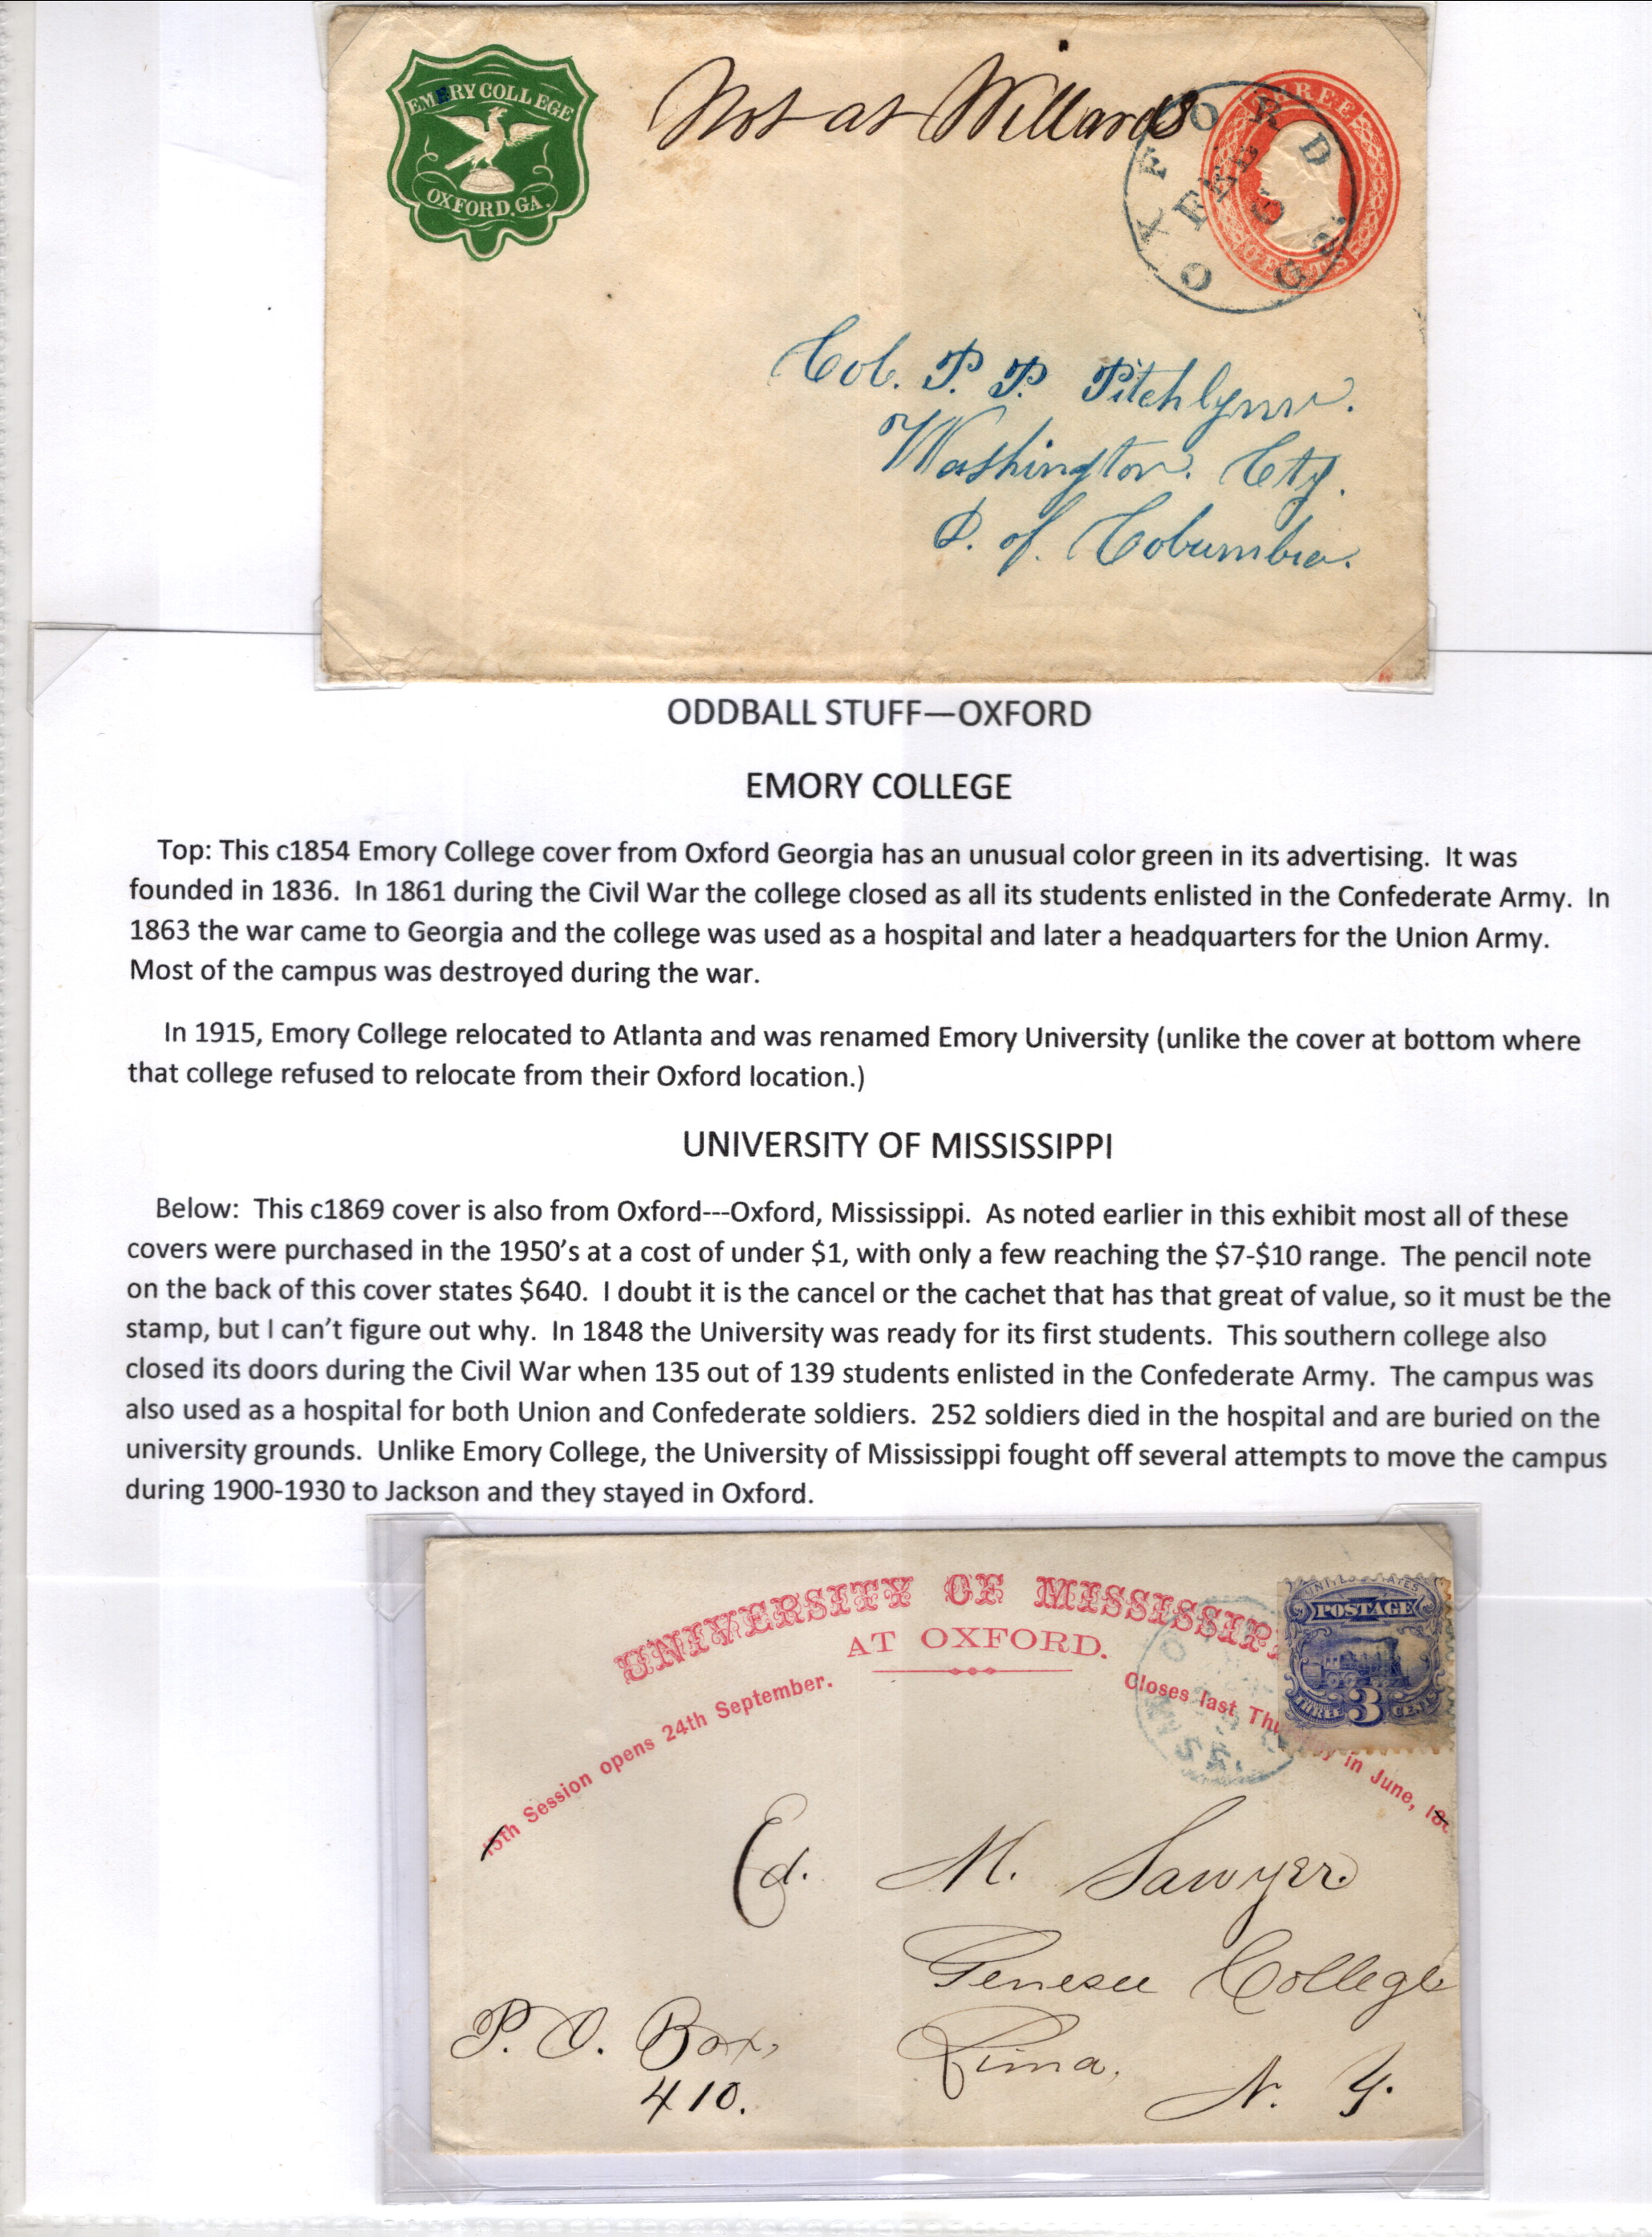 EMORY COLLEGE
OXFORD, GA.
Not at Willards
OXFORD Ga.
FEB
THREE
CENTS
Col. P. P. Pitchlynn.
Washington. Cty.
D. of. Columbia.
ODDBALL STUFF—OXFORD
EMORY COLLEGE
Top: This c1854 Emory College cover from Oxford Georgia has an unusual color green in its advertising. It was
founded in 1836. In 1861 during the Civil War the college closed as all its students enlisted in the Confederate Army. In
1863 the war came to Georgia and the college was used as a hospital and later a headquarters for the Union Army.
Most of the campus was destroyed during the war.
In 1915, Emory College relocated to Atlanta and was renamed Emory University (unlike the cover at bottom where
that college refused to relocate from their Oxford location.)
UNIVERSITY OF MISSISSIPPI
Below: This c1869 cover is also from Oxford---Oxford, Mississippi. As noted earlier in this exhibit most all of these
covers were purchased in the 1950's at a cost of under $1, with only a few reaching the $7-$10 range. The pencil note
on the back of this cover states $640. I doubt it is the cancel or the cachet that has that great of value, so it must be the
stamp, but I can't figure out why. In 1848 the University was ready for its first students. This southern college also
closed its doors during the Civil War when 135 out of 139 students enlisted in the Confederate Army. The campus was
also used as a hospital for both Union and Confederate soldiers. 252 soldiers died in the hospital and are buried on the
university grounds. Unlike Emory College, the University of Mississippi fought off several attempts to move the campus
during 1900-1930 to Jackson and they stayed in Oxford.
UNIVERSITY OF MISSISSIP
AT OXFORD.
15th Session opens 24th September.
Closes last Thu ay in June, 18
UNITED STATES
POSTAGE
THREE 3 CENTS
MISS.
Ed. M. Sawyer.
Genesee College
Lima,
N. Y.
P. O. Box,
410.